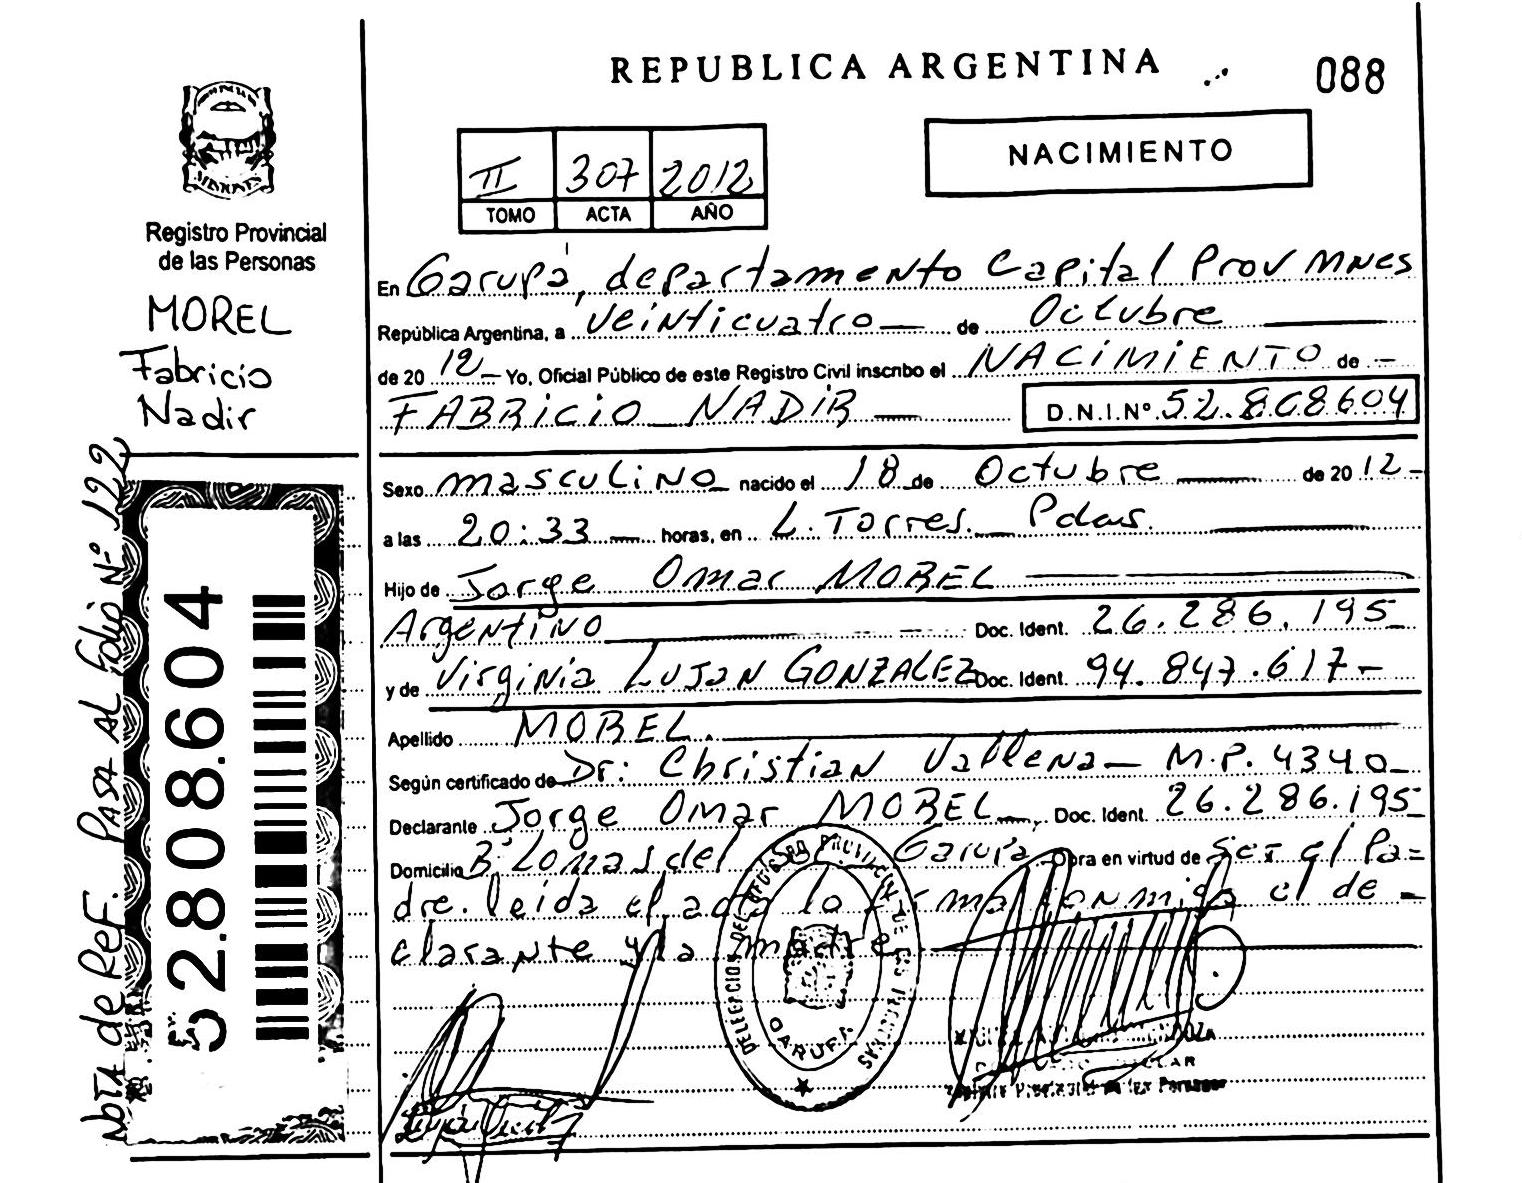 REPUBLICA ARGENTINA
088
NACIMIENTO
II 307 2012
TOMO ACTA AÑO
MISIONES
Registro Provincial
de las Personas
MOREL
Fabricio
Nadir
En Garupá, departamento Capital Prov Mnes
República Argentina, a veinticuatro — de Octubre
de 20 12 — Yo, Oficial Público de este Registro Civil inscribo el NACIMIENTO de —
FABRICIO NADIR — D.N.I.Nº 52.808604
Sexo masculino nacido el 18 de Octubre — de 20 12 -
a las 20:33 — horas, en L. Torres. Pdas.
Hijo de Jorge Omar MOREL
Argentino — Doc. Ident. 26.286.195
y de Virginia Lujan GONZALEZ Doc. Ident. 94.847.617 -
Apellido MOREL.
Según certificado de Dr: Christian Vallena — M.P. 4340
Declarante Jorge Omar MOREL, Doc. Ident. 26.286.195
Domicilio Bº Lomas del Garupá Obra en virtud de Ser el Pa=
dre. leída el acta lo firma conmigo el de -
clarante y la madre
NOTA de Ref. PASA AL folio Nº 122
52.808.604
DELEGACION DEL REGISTRO PROVINCIAL DE LAS PERSONAS
GARUPA
MENDOZA
Registro Provincial de las Personas